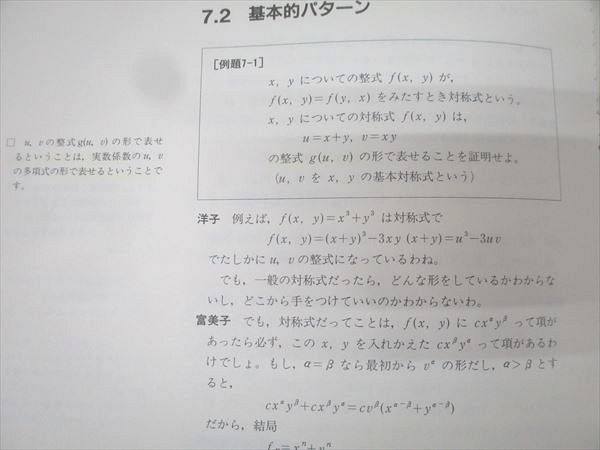 7.2 基本的パターン
[例題7-1]
x, y についての整式 f(x, y) が,
f(x, y)=f(y, x) をみたすとき対称式という。
x, y についての対称式 f(x, y) は,
u=x+y, v=xy
の整式 g(u, v) の形で表せることを証明せよ。
(u, v を x, y の基本対称式という)
□ u, vの整式g(u, v) の形で表せ
るということは, 実数係数のu, v
の多項式の形で表せるということで
す。
洋子 例えば, f(x, y)=x³+y³ は対称式で
f(x, y)=(x+y)³−3xy(x+y)=u³−3uv
でたしかに u, v の整式になっているわね。
でも, 一般の対称式だったら, どんな形をしているかわからな
いし, どこから手をつけていいのかわからないわ。
富美子 でも, 対称式だってことは, f(x, y) に cx^α y^β って項が
あったら必ず, この x, y を入れかえた cx^β y^α って項があるわ
けでしょ。もし, α=β なら最初から v^α の形だし, α>β とす
ると,
cx^α y^β+cx^β y^α=cv^β(x^{α−β}+y^{α−β})
だから, 結局
f_n=x^n+y^n